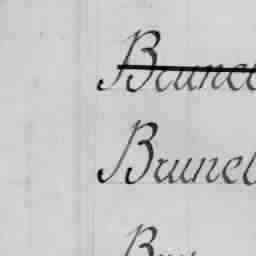 Brunel
Brunel
Bru